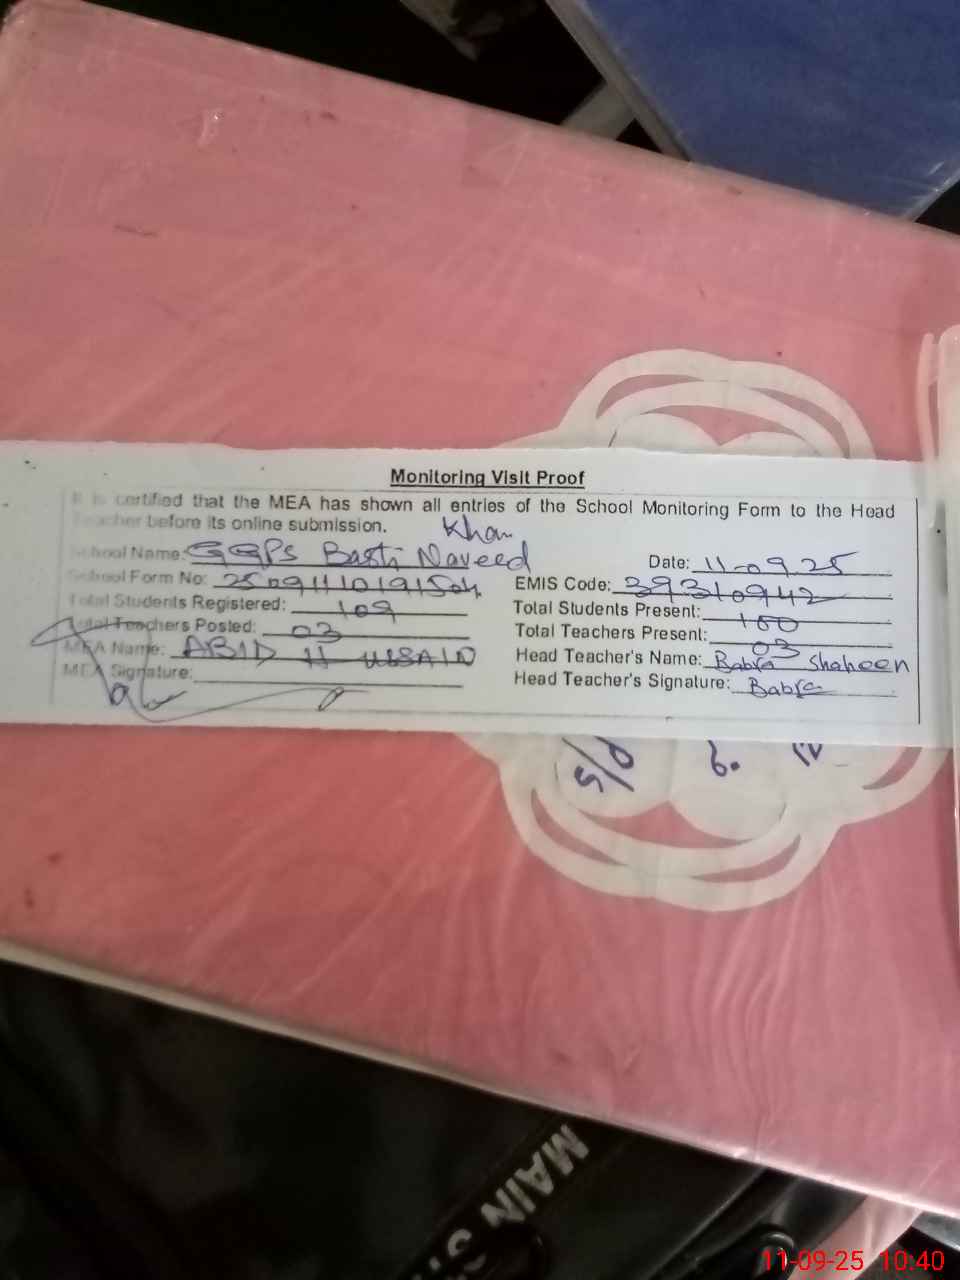 Monitoring Visit Proof
It is certified that the MEA has shown all entries of the School Monitoring Form to the Head
Teacher before its online submission.
Khan
School Name: GGPS Basti Naveed Date: 11-09.25
School Form No: EMIS Code: 39310942
Total Students Registered: 109 Total Students Present: 100
Total Teachers Posted: 03 Total Teachers Present: 03
MEA Name: ABID HUSSAIN Head Teacher's Name: Babra Shaheen
MEA Signature: Head Teacher's Signature: Babra
P/S
MAIN
11-09-25 10:40